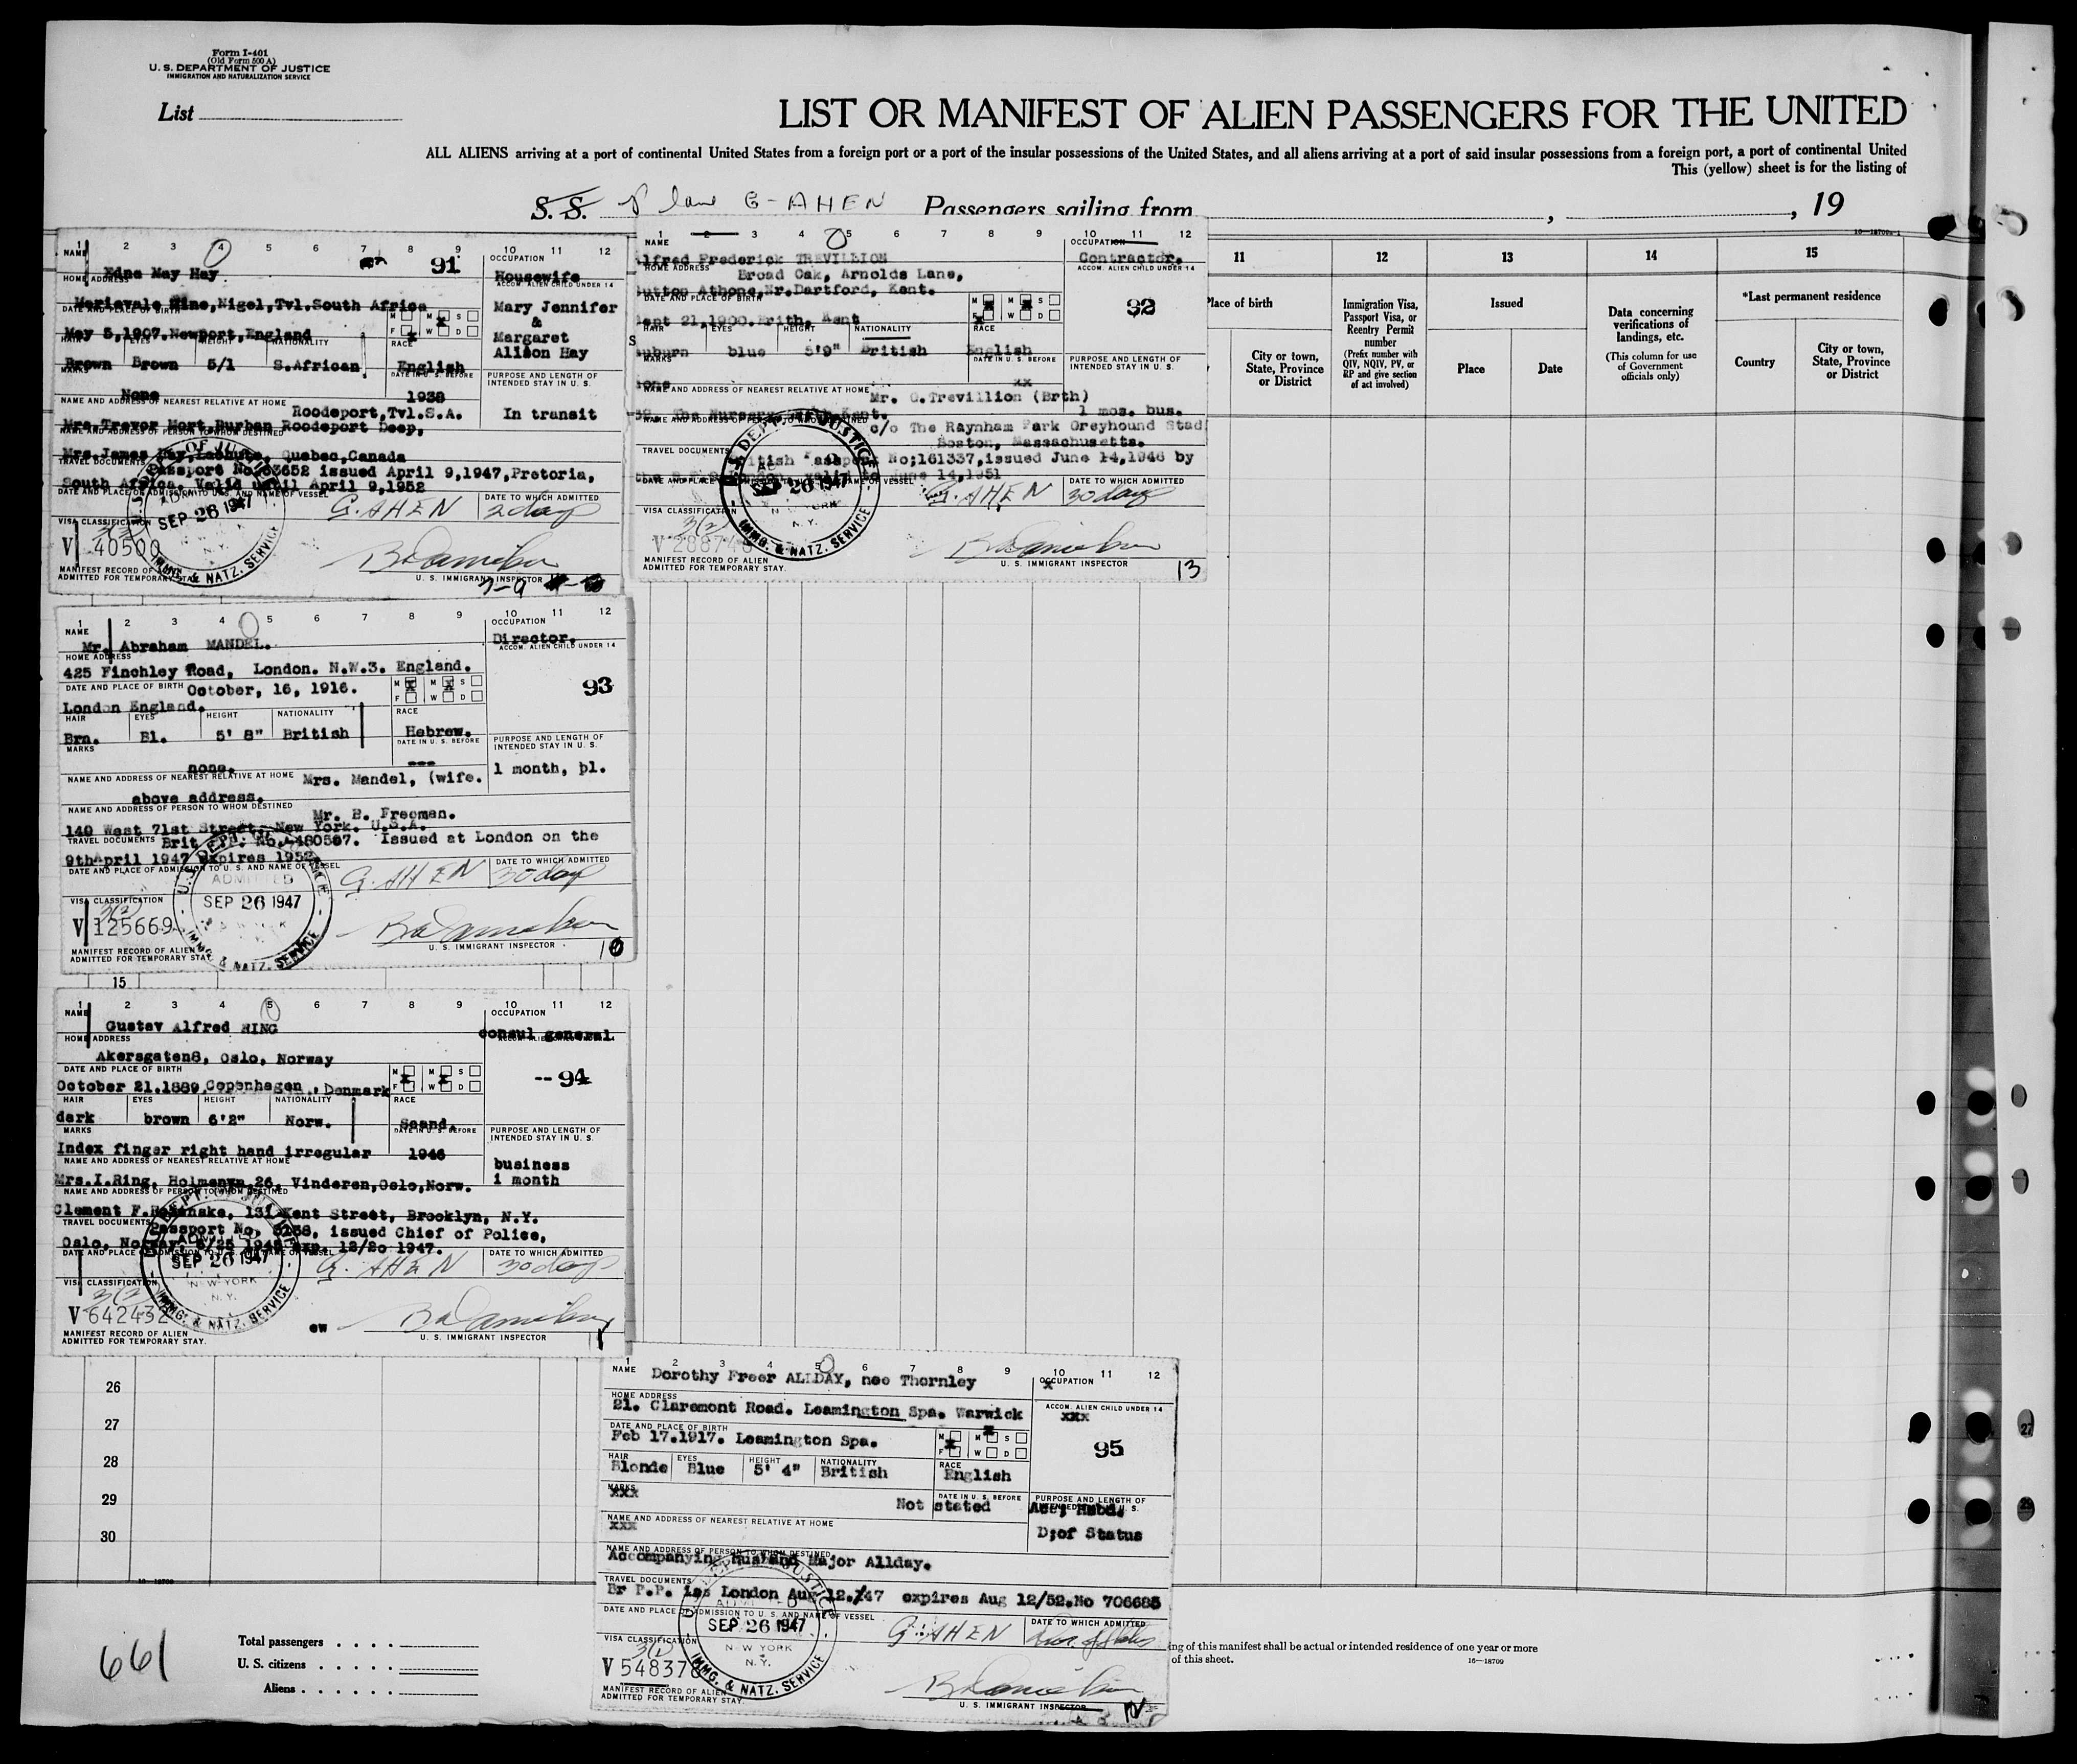 Form I-401
(Old Form 500 A)
U. S. DEPARTMENT OF JUSTICE
IMMIGRATION AND NATURALIZATION SERVICE
List
LIST OR MANIFEST OF ALIEN PASSENGERS FOR THE UNITED
ALL ALIENS arriving at a port of continental United States from a foreign port or a port of the insular possessions of the United States, and all aliens arriving at a port of said insular possessions from a foreign port, a port of continental United
This (yellow) sheet is for the listing of
S. S. Plane G-AHEN Passengers sailing from , , 19
1 2 3 4 5 6 7 8 9 10 11 12
NAME OCCUPATION
Edna May Hay 91 Housewife
HOME ADDRESS ACCOM. ALIEN CHILD UNDER 14
Marievale Mine,Nigel,Tvl.South Africa Mary Jennifer
DATE AND PLACE OF BIRTH M M S &
May 5,1907.Newport,England F W D Margaret
HAIR EYES HEIGHT NATIONALITY RACE Alison Hay
Brown Brown 5/1 S.African English
MARKS DATE IN U. S. BEFORE PURPOSE AND LENGTH OF INTENDED STAY IN U. S.
None 1938
NAME AND ADDRESS OF NEAREST RELATIVE AT HOME Roodeport,Tvl.S.A. In transit
Mrs.Trevor Mort,Durban Roodeport Deep,
NAME AND ADDRESS OF PERSON TO WHOM DESTINED
Mrs.James Hay, Quebec,Canada
TRAVEL DOCUMENTS Passport No. 63652 issued April 9,1947,Pretoria,
South Africa. Valid until April 9,1952
DATE AND PLACE OF ADMISSION TO U. S. AND NAME OF VESSEL DATE TO WHICH ADMITTED
SEP 26 1947 G. AHEN 2 days
VISA CLASSIFICATION
3(2)
V 40500
IMMG. & NATZ. SERVICE
MANIFEST RECORD OF ALIEN
ADMITTED FOR TEMPORARY STAY. U. S. IMMIGRANT INSPECTOR
7-9
1 2 3 4 5 6 7 8 9 10 11 12
NAME OCCUPATION
lfred Frederick TREVILLION Contractor.
HOME ADDRESS Broad Oak, Arnolds Lane, ACCOM. ALIEN CHILD UNDER 14
utton Athone,Nr.Dartford, Kent.
DATE AND PLACE OF BIRTH M M S 92
ept 21,1900.Erith, Kent F W D
HAIR EYES HEIGHT NATIONALITY RACE
auburn blue 5'9" British English
MARKS DATE IN U. S. BEFORE PURPOSE AND LENGTH OF INTENDED STAY IN U. S.
none xx
NAME AND ADDRESS OF NEAREST RELATIVE AT HOME Mr. C.Trevillion (Brth)
The Nursery, Kent. 1 mos. bus.
c/o The Raynham Park Greyhound Stad
Boston, Massachusetts.
TRAVEL DOCUMENTS British Passport No;161337,issued June 14,1946 by
June 14,1951
DATE TO WHICH ADMITTED
SEP 26 1947 G. AHEN 30 days
VISA CLASSIFICATION
3(2)
IMMG. & NATZ. SERVICE
MANIFEST RECORD OF ALIEN
ADMITTED FOR TEMPORARY STAY. U. S. IMMIGRANT INSPECTOR 13
11 12 13 14 15
Place of birth
City or town, State, Province or District
Immigration Visa, Passport Visa, or Reentry Permit number
(Prefix number with QIV, NQIV, PV, or RP and give section of act involved)
Issued
Place Date
Data concerning verifications of landings, etc.
(This column for use of Government officials only)
*Last permanent residence
Country City or town, State, Province or District
1 2 3 4 5 6 7 8 9 10 11 12
NAME OCCUPATION
Mr. Abraham MANDEL. Director.
HOME ADDRESS ACCOM. ALIEN CHILD UNDER 14
425 Finchley Road, London. N.W.3. England.
DATE AND PLACE OF BIRTH October, 16, 1916. M M S 93
London England. F W D
HAIR EYES HEIGHT NATIONALITY RACE
Brn. Bl. 5' 8" British Hebrew.
MARKS DATE IN U. S. BEFORE PURPOSE AND LENGTH OF INTENDED STAY IN U. S.
none. ---
NAME AND ADDRESS OF NEAREST RELATIVE AT HOME Mrs. Mandel, (wife. 1 month, pl.
above address.
NAME AND ADDRESS OF PERSON TO WHOM DESTINED Mr. B. Freeman.
140 West 71st Street, New York. U.S.A.
TRAVEL DOCUMENTS Issued at London on the
9thApril 1947 expires 1952.
DATE AND PLACE OF ADMISSION TO U. S. AND NAME OF VESSEL DATE TO WHICH ADMITTED
ADMITTED
SEP 26 1947 G. AHEN 30 days
VISA CLASSIFICATION
3(2)
V 125669
IMMG. & NATZ. SERVICE
MANIFEST RECORD OF ALIEN
ADMITTED FOR TEMPORARY STAY. U. S. IMMIGRANT INSPECTOR
15
1 2 3 4 5 6 7 8 9 10 11 12
NAME OCCUPATION
Gustav Alfred RING consul general
HOME ADDRESS
Akersgaten8, Oslo, Norway
DATE AND PLACE OF BIRTH M M S --94
October 21.1889,Copenhagen, Denmark F W D
HAIR EYES HEIGHT NATIONALITY RACE
dark brown 6'2" Norw. Scand.
MARKS DATE IN U. S. BEFORE PURPOSE AND LENGTH OF INTENDED STAY IN U. S.
Index finger right hand irregular 1946 business
NAME AND ADDRESS OF NEAREST RELATIVE AT HOME 1 month
Mrs.I.Ring, Holmenvn.26, Vinderen,Oslo,Norw.
NAME AND ADDRESS OF PERSON TO WHOM DESTINED
Clement F. 131 Kent Street, Brooklyn, N.Y.
TRAVEL DOCUMENTS Passport No. issued Chief of Police,
Oslo, Norway. exp. 12/20 1947.
DATE AND PLACE OF ADMISSION TO U. S. AND NAME OF VESSEL DATE TO WHICH ADMITTED
SEP 26 1947 G. AHEN 30 days
NEW YORK
N. Y.
VISA CLASSIFICATION
3(2)
V 642432
IMMG. & NATZ. SERVICE
MANIFEST RECORD OF ALIEN ew
ADMITTED FOR TEMPORARY STAY. U. S. IMMIGRANT INSPECTOR
26
27
28
29
30
16—18709
1 2 3 4 5 6 7 8 9 10 11 12
NAME Dorothy Freer ALLDAY, nee Thornley OCCUPATION
x
HOME ADDRESS ACCOM. ALIEN CHILD UNDER 14
21. Claremont Road. Leamington Spa. Warwick xxx
DATE AND PLACE OF BIRTH M M S
Feb 17.1917. Leamington Spa. F W D 95
HAIR EYES HEIGHT NATIONALITY RACE
Blonde Blue 5' 4" British English
MARKS DATE IN U. S. BEFORE PURPOSE AND LENGTH OF
xxx Not stated Acc, Husbd.
NAME AND ADDRESS OF NEAREST RELATIVE AT HOME D;of Status
xxx
NAME AND ADDRESS OF PERSON TO WHOM DESTINED
Accompanying Husband Major Allday.
TRAVEL DOCUMENTS
Br P.P. iss London Aug 12./47 expires Aug 12/52.No 706685
DATE AND PLACE OF ADMISSION TO U. S. AND NAME OF VESSEL DATE TO WHICH ADMITTED
SEP 26 1947 G. AHEN Dur. of Status
NEW YORK
N. Y.
VISA CLASSIFICATION
3(1)
V 548376
IMMG. & NATZ. SERVICE
MANIFEST RECORD OF ALIEN
ADMITTED FOR TEMPORARY STAY. U. S. IMMIGRANT INSPECTOR
661
Total passengers
U. S. citizens
Aliens
ing of this manifest shall be actual or intended residence of one year or more
of this sheet. 16—18709
27
29